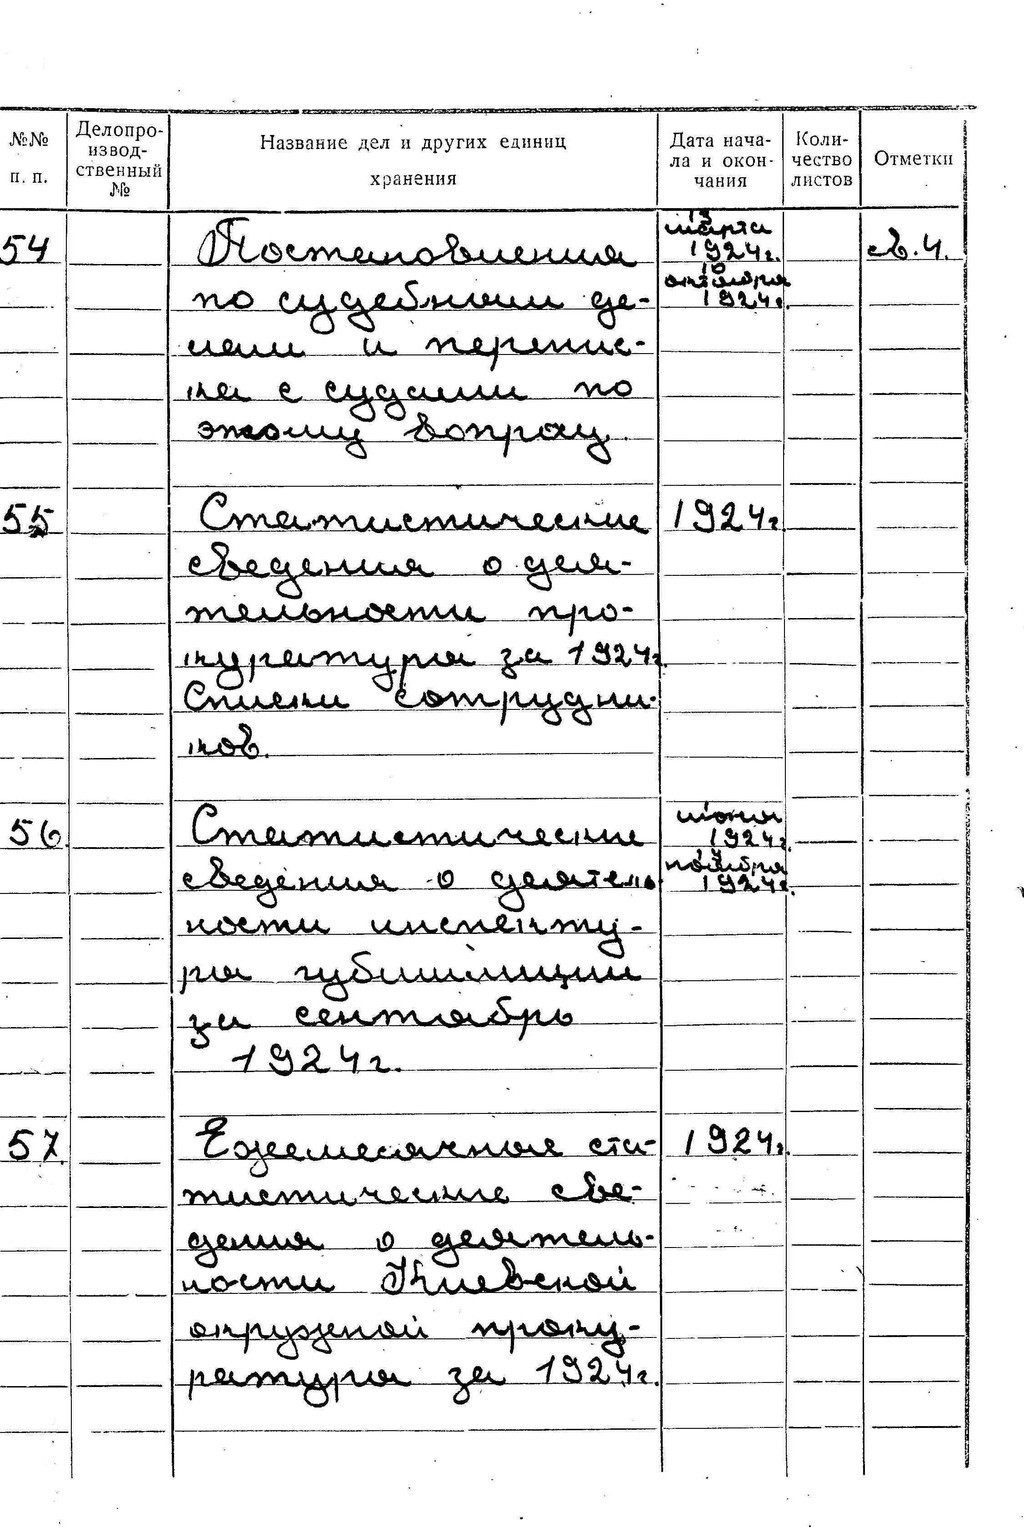 №№ п. п.
Делопро-изводственный №
Название дел и других единиц хранения
Дата начала и окончания
Количество листов
Отметки
54
Постановления
по судебным де-
лам и перепис-
ка с судами по
этому вопросу.
13
марта
1924г.
10
октября
1924г.
55
Статистические
сведения о дея-
тельности про-
куратуры за 1924г.
Списки сотрудни-
ков.
1924г.
56
Статистические
сведения о деятель
ности инспекту-
ры губмилиции
за сентябрь
1924г.
июня
1924г.
ноября
1924г.
57.
Ежемесячные ста-
тистические све-
дения о деятель-
ности Киевской
окружной проку-
ратуры за 1924г.
1924г.